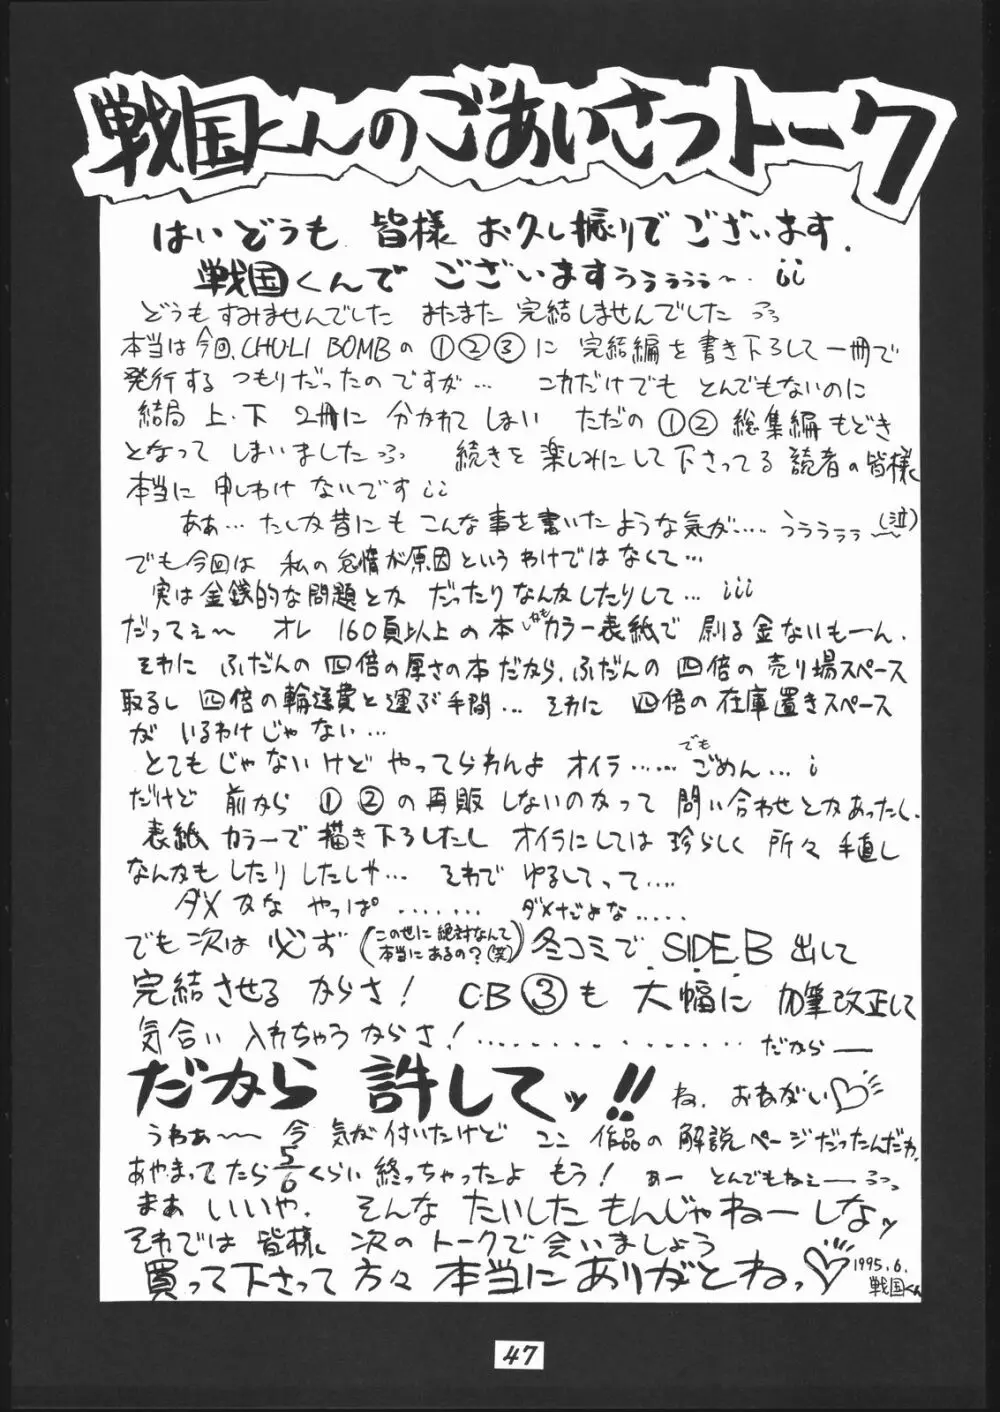 戦国くんのごあいさつトーク
はいどうも 皆様 お久し振りでございます.
戦国くんで ございますぅぅぅぅぅ〜..¡¡
どうもすみませんでした またまた 完結しませんでした
本当は今回、CHU-LI BOMBの ①②③に 完結編を書き下ろして一冊で
発行する つもりだったのですが… これだけでも とんでもないのに
結局 上・下 2冊に 分かれて しまい ただの ①② 総集編もどき
となって しまいました 続きを 楽しみにして下さってる 読者の皆様
本当に 申しわけ ないです¡¡
ああ… たしか昔にも こんな事を書いたような気が….. うぅぅぅぅ(泣)
でも今回は 私の怠惰が原因というわけではなくて…
実は金銭的な問題とか だったりなんかしたりして… ¡¡¡
だってぇ〜 オレ 160頁以上の本しかもカラー表紙で 刷る金ないもーん.
それに ふだんの 四倍の厚さの本だから、ふだんの 四倍の 売り場スペース
取るし 四倍の輸送費と運ぶ手間… それに 四倍の在庫置きスペース
が いるわけじゃない…
とてもじゃないけど やってられんよ オイラ…… でもごめん… ¡
だけど 前から ①②の再販 しないのかって 問い合わせとかあったし.
表紙 カラーで 描き下ろしたし オイラにしては 珍らしく 所々 手直し
なんかも したり したしゃ… それで ゆるしてって….
ダメかな やっぱ ……. ダメだよな…..
でも次は 必ず (この世に絶対なんて本当にあるの?(笑)) 冬コミで SIDE.B 出して
完結させる からさ! C・B③も 大幅に 加筆改正して
気合い 入れちゃうからさ!................. だから―
だから 許してッ!! ね、おねがい♡
うわぁ〜〜 今 気が付いたけど ここ 作品の 解説ページだったんだわ.
あやまってたら5/6くらい終っちゃったよ もう! あー とんでもねぇー
まぁ いいや、 そんな たいした もんじゃねーしなッ
それでは 皆様 次の トークで 会いましょう
買って下さって 方々 本当に ありがとねっ♡ 1995.6.
戦国くん
47